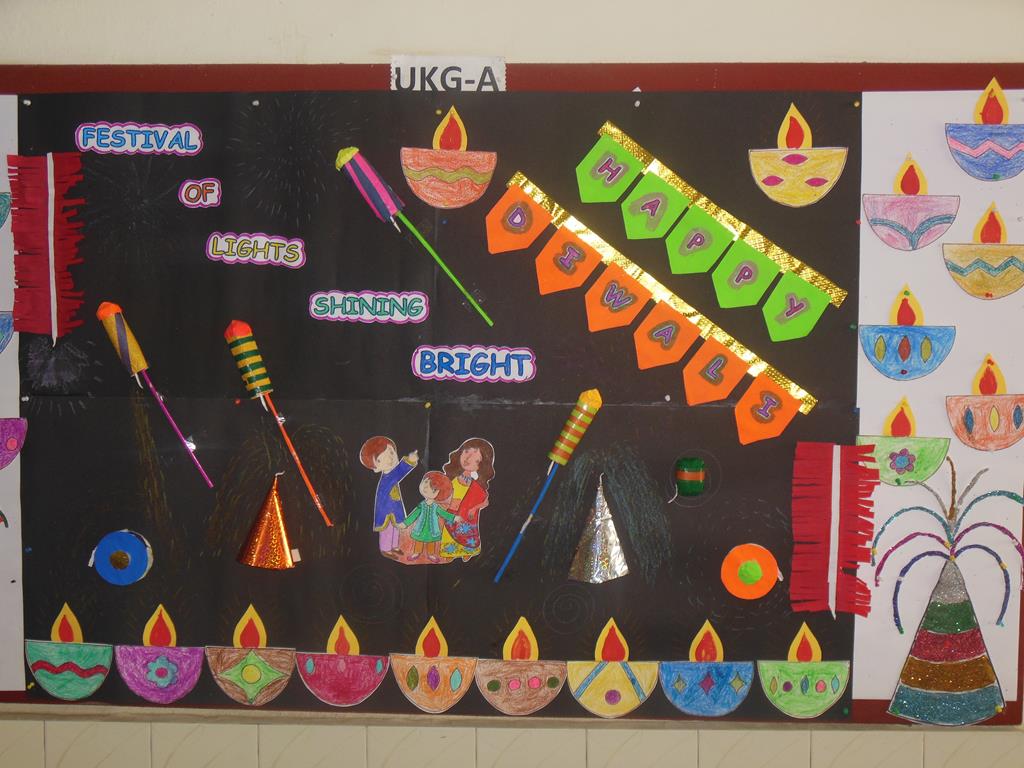 UKG-A
FESTIVAL
OF
LIGHTS
SHINING
BRIGHT
HAPPY
DIWALI